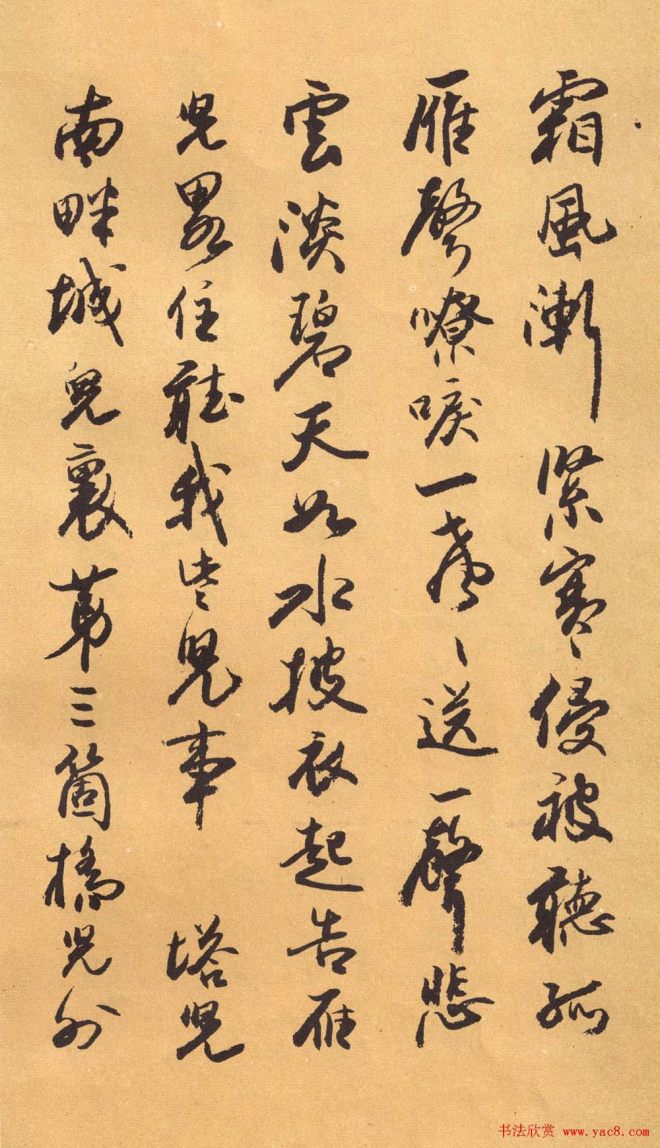 霜風漸緊寒侵被聽孤
雁聲嘹唳一聲〻送一聲悲
雲淡碧天如水披衣起告雁
兒畧住聽我些兒事 塔兒
南畔城兒裏第三箇橋兒外
书法欣赏 www.yac8.com